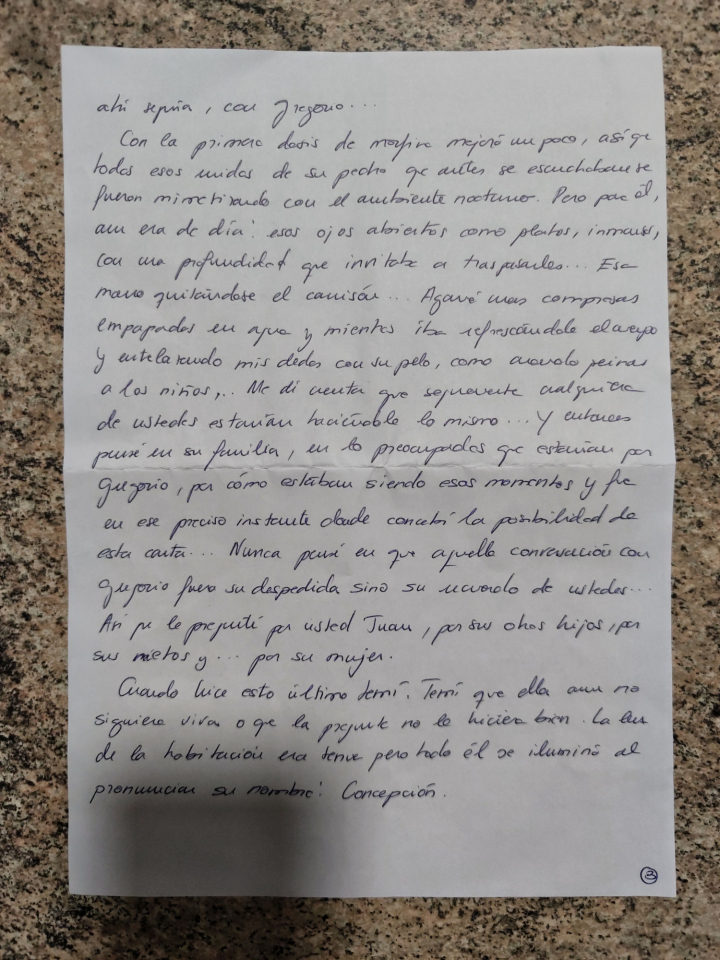 ahí seguía, con Gregorio...
Con la primera dosis de morfina mejoró un poco, así qe
todos esos ruidos de su pecho qe antes se escuchaban se
fueron mimetizando con el ambiente nocturno. Pero para él,
aun era de día: esos ojos abiertos como platos, inmensos,
con una profundidad que invitaba a traspasarles... Esa
mano quitándose el camisón... Agarré unas compresas
empapadas en agua y mientras iba refrescándole el cuerpo
y entelazando mis dedos con su pelo, como cuando peinas
a los niños,.. Me di cuenta que seguramente cualquiera
de ustedes estarían haciéndole lo mismo... Y entonces
pensé en su familia, en lo preocupados que estarían por
Gregorio, por cómo estaban siendo esos momentos y fue
en ese preciso instante donde concebí la posibilidad de
esta carta... Nunca pensé en que aquella conversación con
Gregorio fuera su despedida sino su recuerdo de ustedes...
Así qe le pregunté por usted Juan, por sus otros hijos, por
sus nietos y... por su mujer.
Cuando hice esto último temí. Temí que ella aun no
siguiera viva o qe la pregunta no le hiciera bien. La luz
de la habitación era tenue pero todo él se iluminó al
pronunciar su nombre: Concepción.
3